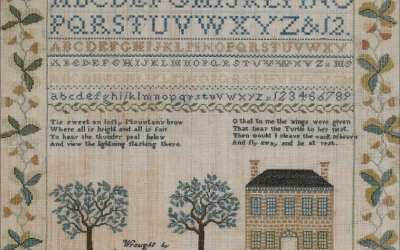 PQRSTUVWXYZ&12
ABCDEFGHIJKLMNOPQRSTUVWXY
abcdefghijklmnopqrstuvwxyz.123456789
Tis sweet on lofty Mountain's brow
Where all is bright and all is fair
To hear the thunder peal below
And view the lightning flashing there.
O that to me the wings were given
That bear the Turtle to her nest.
Then would I cleave the vault of heav'n
And fly away, and be at rest.
Wrought by